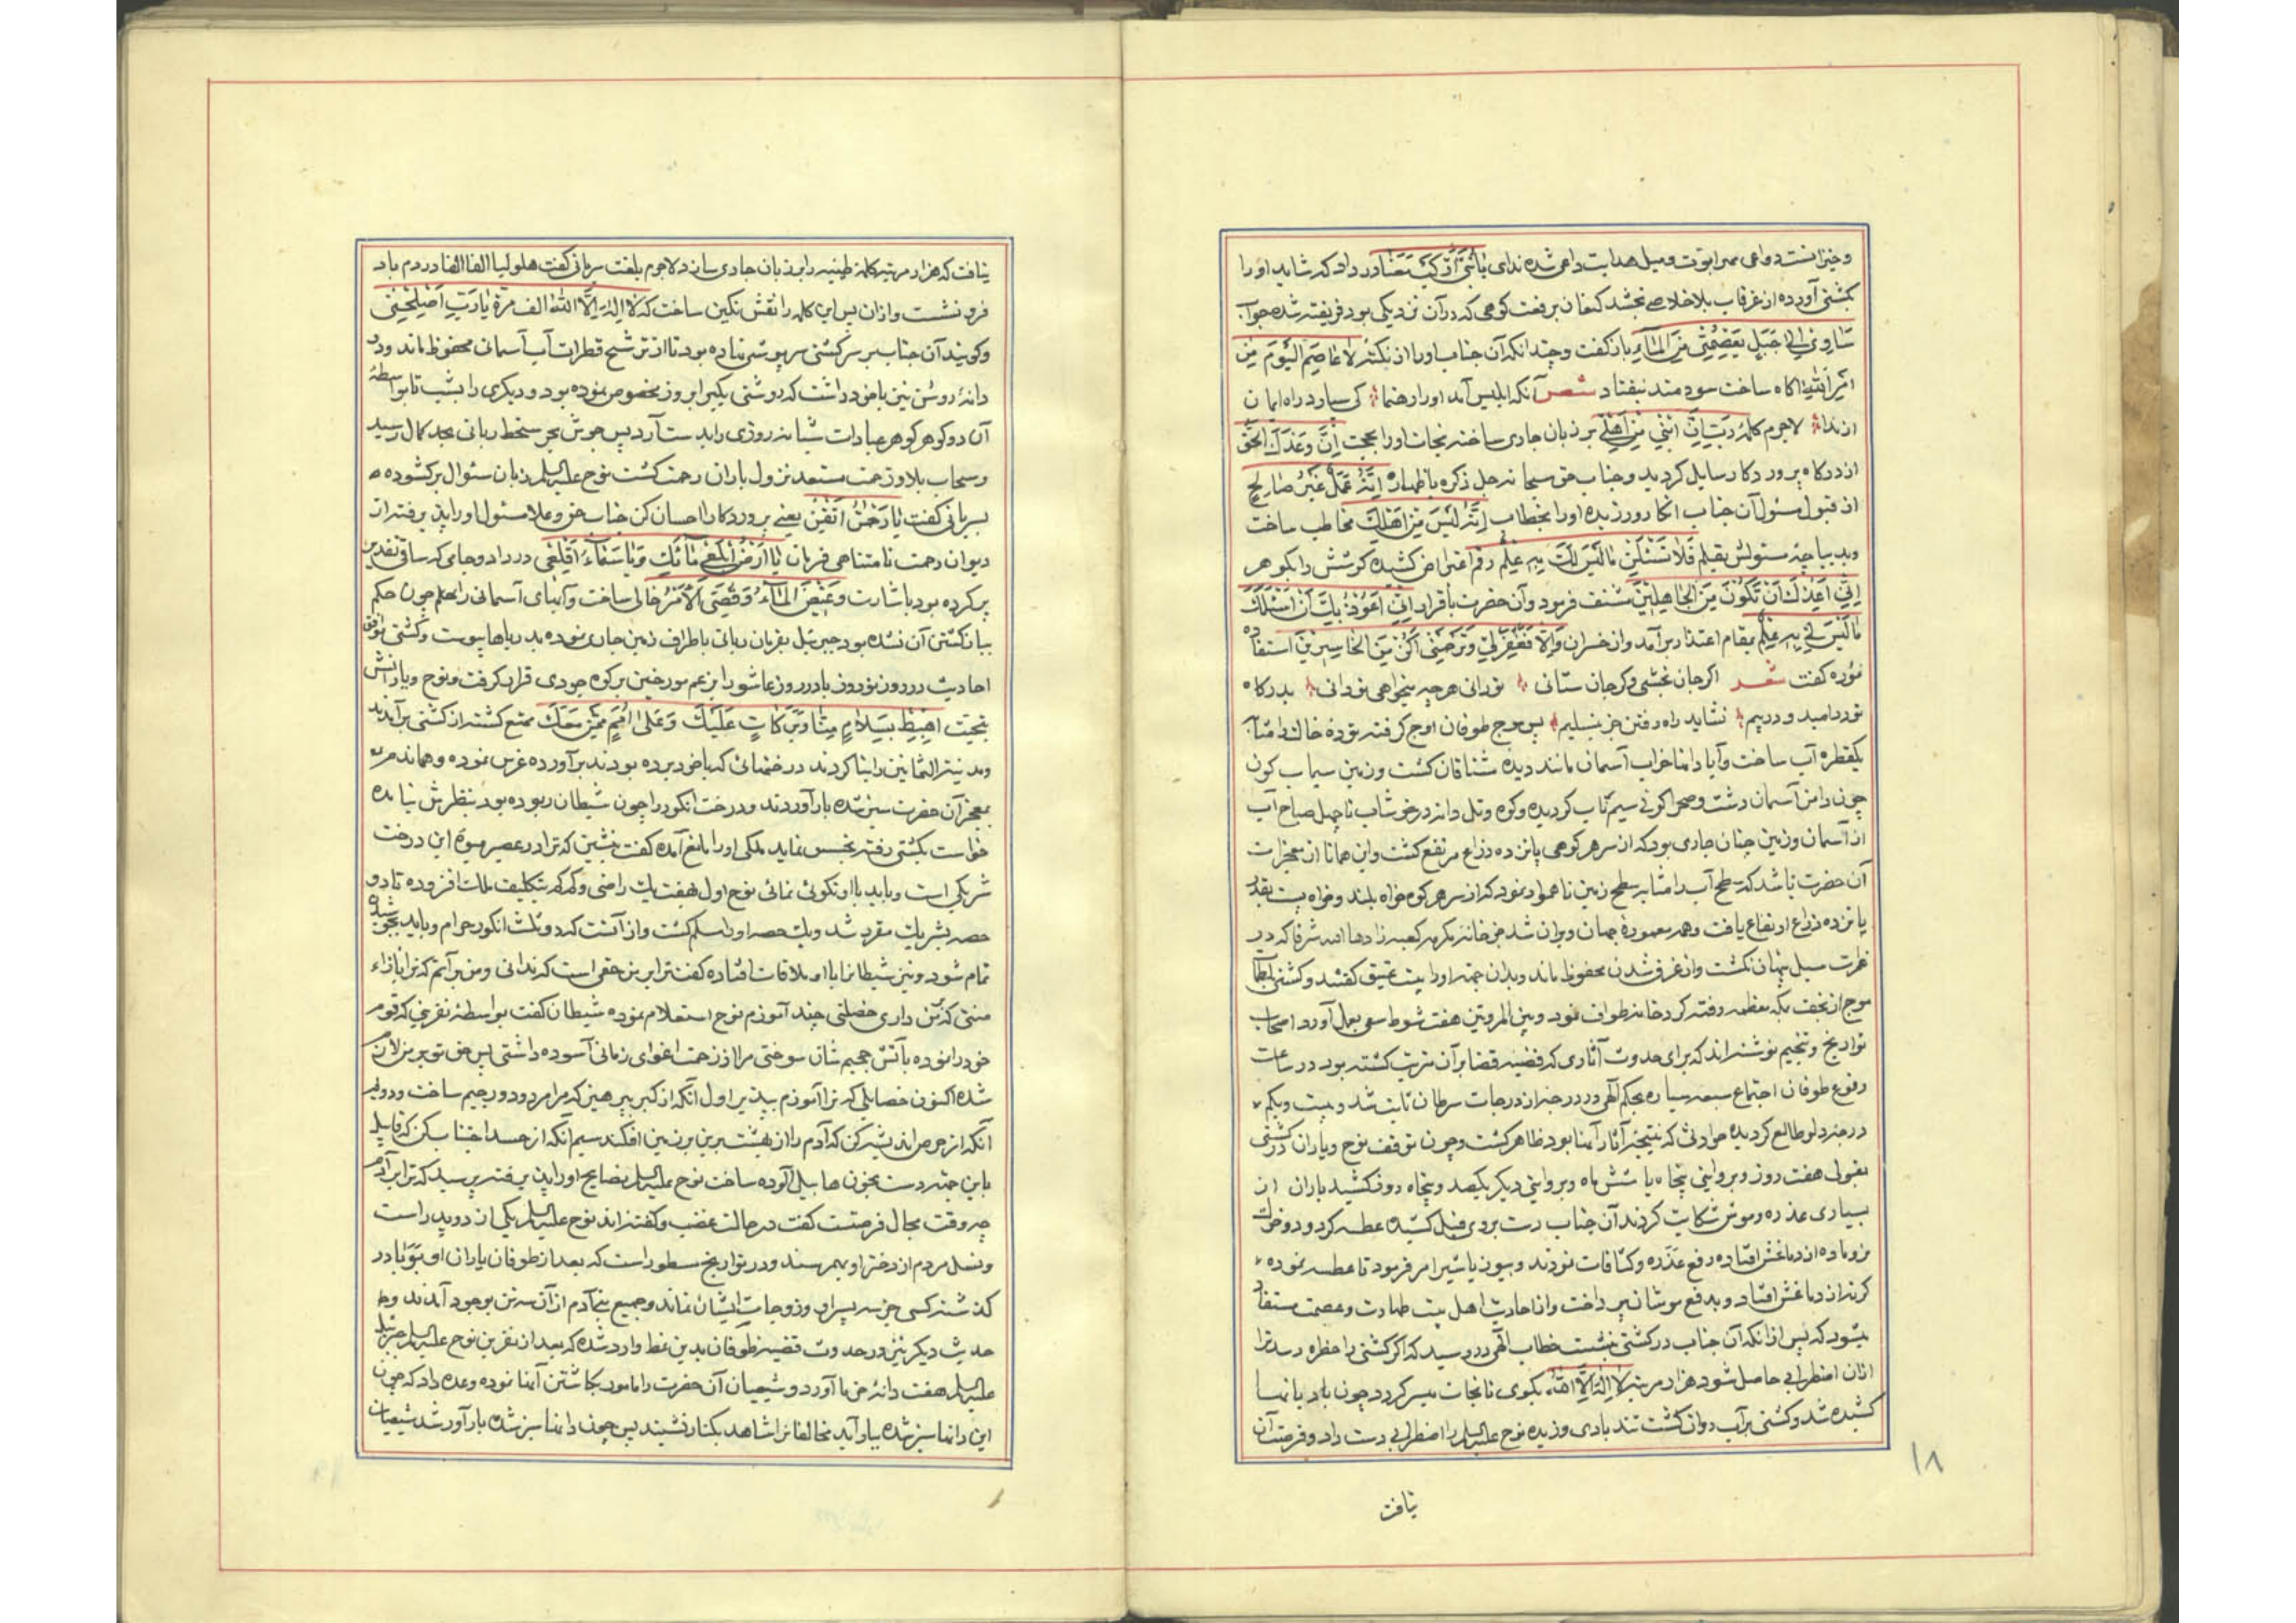 و خیزانست دواعی مهر ابوت و میل هدایت داعی شده ندای یا بُنَیَّ ارْکَبْ مَعَنَا در داد که شاید او را
بکشتی آورده از غرقاب بلا خلاصی بخشد کنعان برفعت کوهی که در آن نزدیکی بود فریفته شده جواب
سَآوِی اِلیٰ جَبَلٍ یَعْصِمُنِی مِنَ الْمٰآءِ باز گفت و چندانکه آن جناب او را از نکته لا عٰاصِمَ الْیَوْمَ مِنْ
اَمْرِ اللّٰهِ آگاه ساخت سودمند نیفتاد شعر آنکه ابلیس آمد او را رهنما کی سپارد راه ایمان
از ندا لاجرم کلمه رَبِّ اِنَّ ابْنِی مِنْ اَهْلِی بر زبان جاری ساخته نجات او را بحجت اِنَّ وَعْدَکَ الْحَقُّ
از درگاه پروردگار سایل گردید و جناب حق سبحانه جل ذکره باظهار اِنَّهُ عَمَلٌ غَیْرُ صٰالِحٍ
از قبول مسئول آن جناب انکار ورزیده او را بخطاب اِنَّهُ لَیْسَ مِنْ اَهْلِکَ مخاطب ساخت
و بدیباجه مسئولش بقلم فَلا تَسْئَلْنِ مٰا لَیْسَ لَکَ بِهِ عِلْمٌ رقم اعتراض کشیده گوشش را بگوهر
اِنِّی اَعِظُکَ اَنْ تَکُونَ مِنَ الْجٰاهِلِینَ مشنف فرمود و آن حضرت باقرار اِنِّی اَعُوذُ بِکَ اَنْ اَسْئَلَکَ
مٰا لَیْسَ لِی بِهِ عِلْمٌ بمقام اعتذار برآمد و از خسران وَ اِلّٰا تَغْفِرْ لِی وَ تَرْحَمْنِی اَکُنْ مِنَ الْخٰاسِرِینَ استفاده
نموده گفت شعر اگر جان بخشی و گر جان ستانی توانی هر چه میخواهی توانی بدرگاه
تو در امید و در بیم نشاید راه رفتن جز بتسلیم پس موج طوفان اوج گرفته توده خاک را مثاب
یکقطره آب ساخت و آبادانها خراب آسمان مانند دیده مشتاقان گشت و زمین سیماب گون
چون دامن آسمان دشت و صحرا گوئی سیم ناب گردیده و کوه و تل دانه در خوشاب تا چهل صباح آب
از آسمان و زمین چنان جاری بود که از سر هر کوهی پانزده ذراع مرتفع گشت و این همانا از معجزات
آن حضرت باشد که سطح آب را مشابه سطح زمین ناهموار نمود که از سر هر کوه خواه بلند و خواه پست بقدر
پانزده ذراع ارتفاع یافت و همه معموره جهان ویران شد جز خانه مکرمه کعبه زادها الله شرفا که در
نظرت سیل پنهان نگشت و از غرق شدن محفوظ ماند و بدان جهة او را بیت عتیق گفتند و کشتی بلطمات
موج از نجف بمکه معظمه رفته گرد خانه طواف نمود و بین المروتین هفت شوط سعی بعمل آورد اصحاب
تواریخ و تنجیم نوشته‌اند که برای حدوث آثاری که قضیه قضا بر آن مترتب گشته بود در ساعت
وقوع طوفان اجتماع سبعه سیاره بحکم الهی در درجه از درجات سرطان ثابت شد و بیست و یکم
درجه دلو طالع گردیده حوادثی که نتیجه آثار آنها بود ظاهر گشت و چون توقف نوح و یاران در کشتی
بقولی هفت روز و بروایتی پنجاه یا شش ماه و بروایتی دیگر یکصد و پنجاه روز کشید یاران از
بسیاری عذره و موش شکایت کردند آن جناب دست بروی فیل کشیده عطسه کرد و دو خوک
نر و ماده از دماغش افتاده رفع عذره و کثافات نمودند و همچون با شیر امر فرمود تا عطسه نموده
گربه از دماغش افتاد و بدفع موشان پرداخت و از احادیث اهل بیت طهارت و عصمت مستفاد
میشود که پس از آنکه آن جناب در کشتی نشست خطاب الهی در رسید که اگر کشتی را خطره رسد ترا
از آن اضطرابی حاصل شود هزار مرتبه لا اِلٰهَ اِلَّا اللّٰهُ بگوی تا نجات میسر گردد چون بادبانها
کشیده شد و کشتی بر آب روان گشت تند بادی وزیده نوح علیه السلم را اضطرابی دست داد و فرصت آن
یافت
۱۸
نیافت که هزار مرتبه کلمه طیبه را بر زبان جاری سازد لاجرم بلغت سریانی گفت هلولیا الفا الفا در دم باد
فرو نشست و از آن پس این کلمه را نقش نگین ساخت که لا اِلٰهَ اِلَّا اللّٰهُ الف مَرَّة یٰا رَبِّ اَصْلِحْنِی
و گویند آن جناب بر سر کشتی سرپوشی نهاده بود تا از ترشح قطرات آب آسمانی محفوظ ماند و دو
دانه روشن نیز با خود داشت که روشنی یکی را بروز مخصوص نموده بود و دیگری را بشب تا بواسطه
آن دو گوهر گوهر عبادات شبانه روزی را بدست آرد پس جوش بحر سخط ربانی بحد کمال رسید
و سحاب بلا و زحمت مستعد نزول باران رحمت گشت نوح علیه السلم زبان سئوال برگشوده
بسریانی گفت یٰا رَحْمٰنُ اَتْقِنْ یعنی پروردگارا احسان کن جناب حق و علا مسئول او را پذیرفته از
دیوان رحمت نامتناهی فرمان یٰا اَرْضُ ابْلَعِی مٰآئَکِ وَ یٰا سَمٰآءُ اَقْلِعِی در داد و جامی که ساقی تقدیر
پر کرده بود باشارت وَ غِیضَ الْمٰآءُ وَ قُضِیَ الْاَمْرُ خالی ساخت و آبهای آسمانی را هم چون حکم
بباز گشتن آن نشده بود جبرئیل بفرمان ربانی باطراف زمین جاری نموده بدریاها پیوست و کشتی موافق
احادیث در روز نوروز یا در روز عاشورا بزعم مورخین بر کوه جودی قرار گرفت و نوح و یارانش
بتحیت اهْبِطْ بِسَلٰامٍ مِنّٰا وَ بَرَکٰاتٍ عَلَیْکَ وَ عَلیٰ اُمَمٍ مِمَّنْ مَعَکَ ممتع گشته از کشتی برآمدند
و مدینة الثمانین را بنا کردند درختهائی که با خود برده بودند برآورده غرس نموده و هماندم
بمعجز آن حضرت سبز شده بار آوردند و درخت انگور را چون شیطان ربوده بود بنظرش نیامده
خواست بکشتی رفته تجسس نماید ملکی او را مانع آمده گفت بنشین که ترا در عصیر میوه این درخت
شریکی است و باید با او نکوئی نمائی نوح اول بهفت یک راضی و کم کم بتکلیف ملک افزوده تا دو
حصه بشریک مقرر شد و یک حصه او را مسلم گشت و از آنست که دو ثلث انگور حرام و باید بجوشیدن
تمام شود و نیز شیطان را با او ملاقات افتاده گفت ترا بر من حقی است که ندانی و من بر آنم که ترا بازاء
منتی که بر من داری خصلتی چند آموزم نوح استعلام نموده شیطان گفت بواسطه نفرینی که قوم
خود را نموده بآتش جحیم شان سوختی مرا از زحمت اغوای زمانی آسوده داشتی پس حق تو بر من لازم
شده اکنون خصایلی که ترا آموزم بپذیر اول آنکه از کبر بپرهیز که مرا مردود و رجیم ساخت و دوم
آنکه از حرص اندیشه کن که آدم را از بهشت برین بر زمین افکند سیم آنکه از حسد اجتناب کن که قابیل
باین جهة دست بخون هابیل آلوده ساخت نوح علیه السلم نصایح او را پذیرفته پرسید که ترا بر آدم
چه وقت مجال فرصتست گفت در حالت غضب و گفته‌اند نوح علیه السلم یکی از دو پدر است
و نسل مردم از دختر او بهم رسند و در تواریخ مسطور است که بعد از طوفان یاران او بوبا در
گذشته کسی جز سه پسر او و زوجات ایشان نماند و جمیع بنی آدم از آن سه تن بوجود آمدند و
حدیث دیگر نیز در حدوث قضیه طوفان بدین نمط وارد شده که بعد از نفرین نوح علیه السلم جبرئیل
علیه السلم هفت دانه خرما آورد و شیعیان آن حضرت را مامور بکاشتن آنها نموده وعده داد که چون
این دانها سبز شده ببار آید مخالفانرا شاهد بکنار نشیند پس چون دانها سبز شده بار آور شد شیعیان